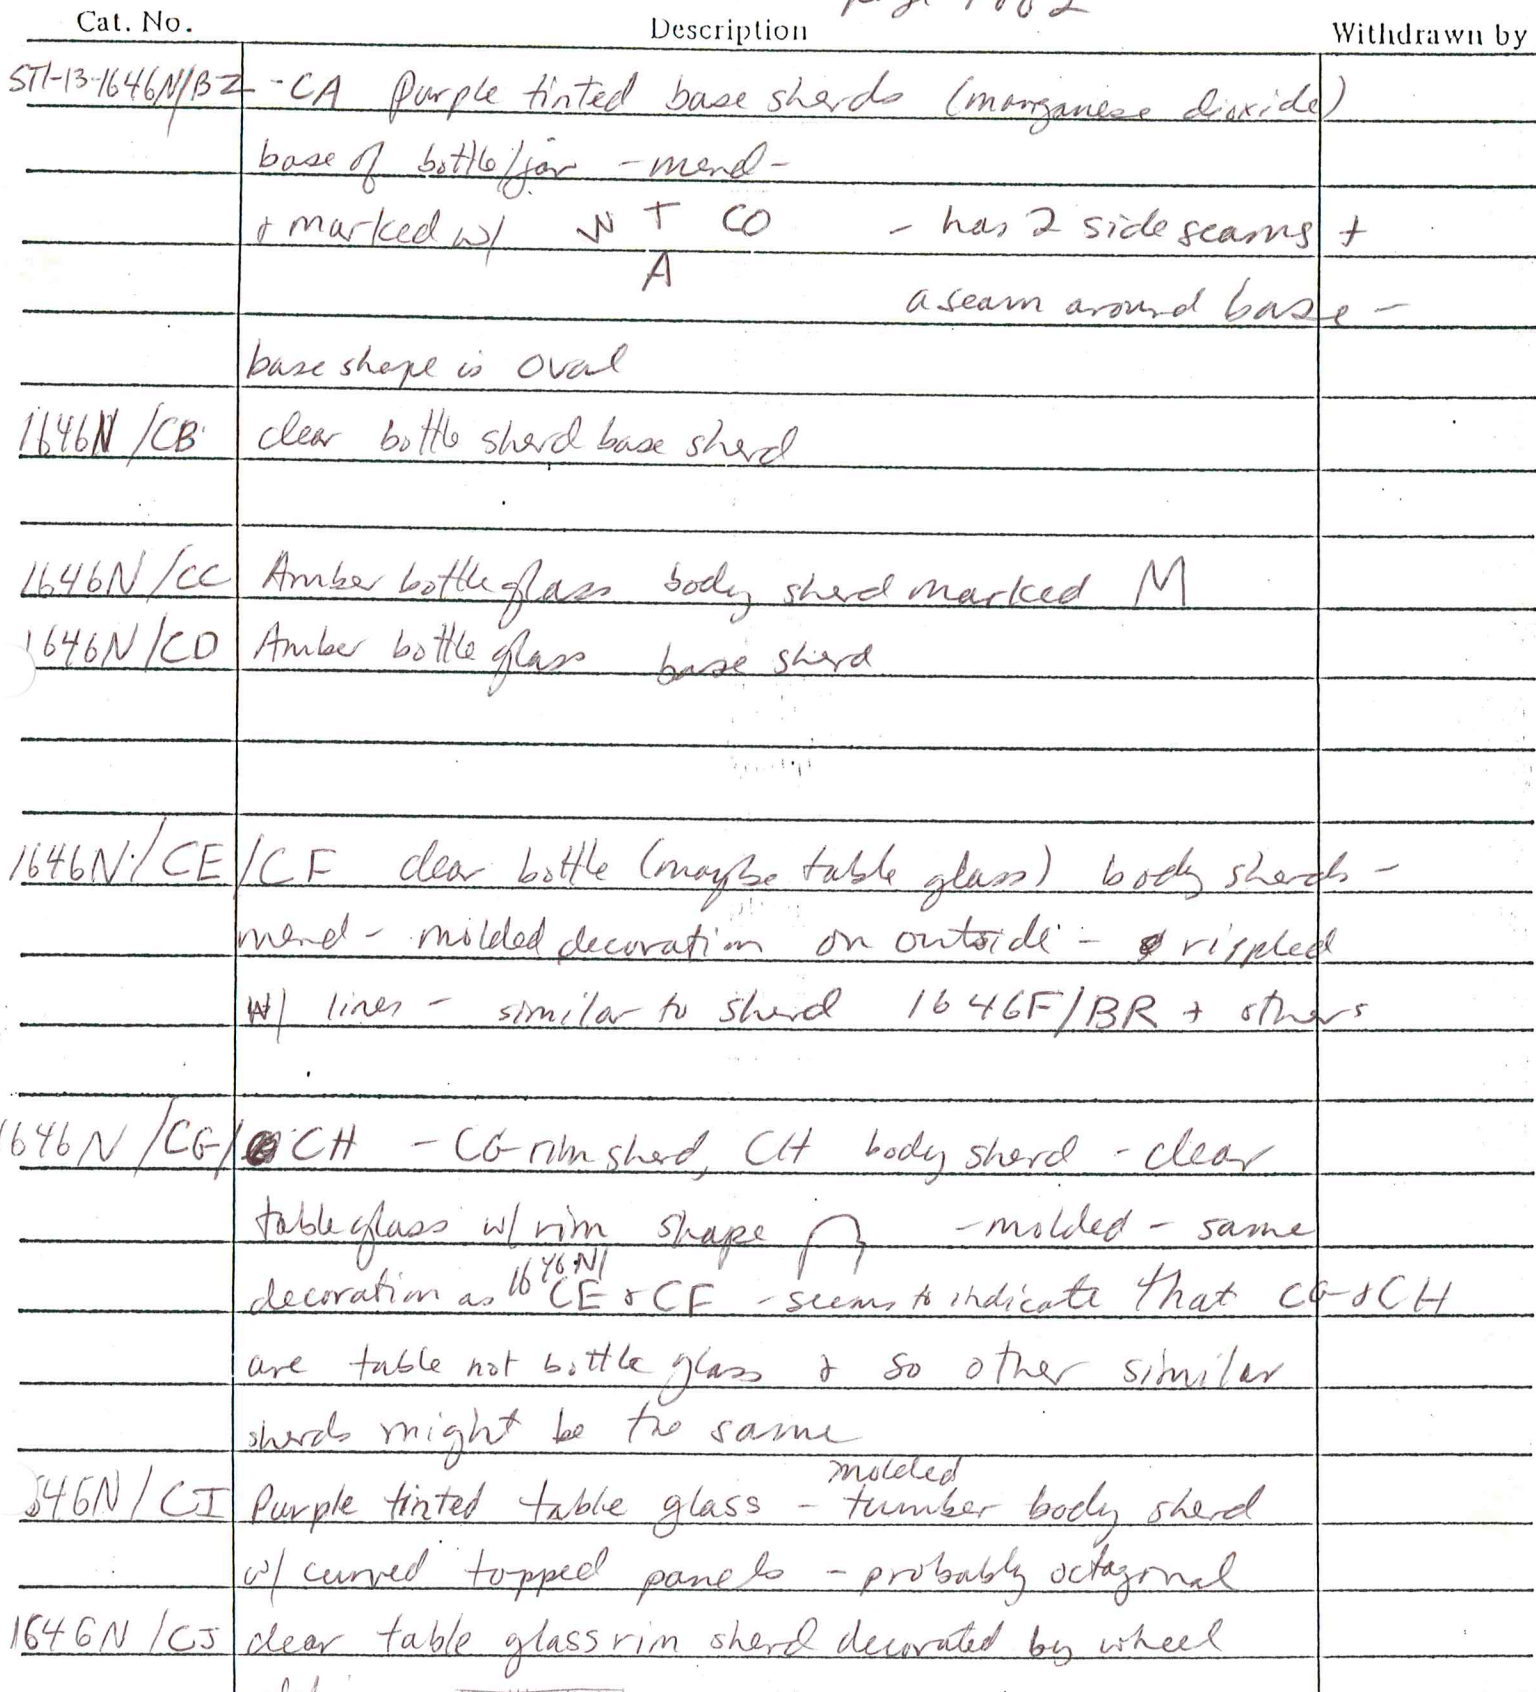 Cat. No. Description Withdrawn by
ST1-13-1646N/BZ -CA Purple tinted base sherds (manganese dioxide)
base of bottle/jar -mend-
+ marked w/ W T CO - has 2 side seams +
A
a seam around base -
base shape is oval
1646N/CB clear bottle sherd base sherd
1646N/CC Amber bottle glass body sherd marked M
1646N/CD Amber bottle glass base sherd
1646N/CE/CF clear bottle (maybe table glass) body sherds -
mend - molded decoration on outside - rippled
w/ lines - similar to sherd 1646F/BR + others
1646N/CG/CH - CG rim sherd, CH body sherd - clear
table glass w/ rim shape - molded - same
1646N/
decoration as CE & CF - seems to indicate that CG & CH
are table not bottle glass & so other similar
sherds might be the same
molded
646N/CI Purple tinted table glass - tumber body sherd
w/ curved topped panels - probably octagonal
1646N/CJ clear table glass rim sherd decorated by wheel